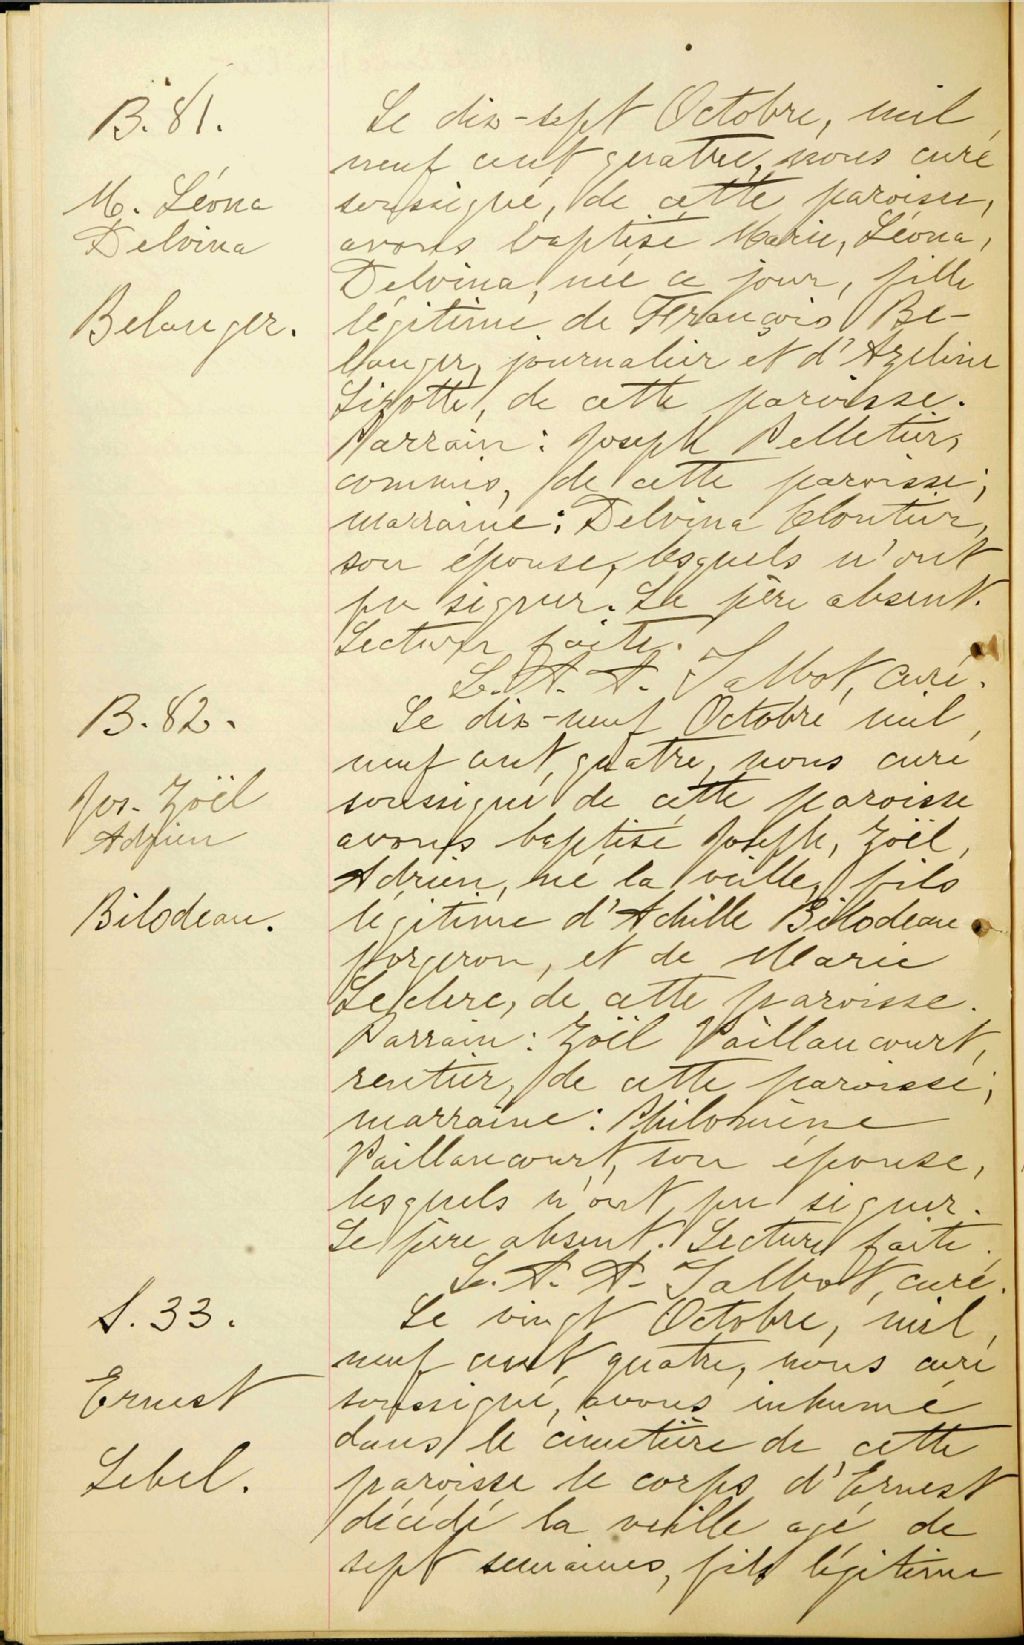 B. 81.
M. Léona
Delvina
Belanger.
Le dix-sept Octobre, mil
neuf cent quatre, nous curé
soussigné, de cette paroisse,
avons baptisé Marie, Léona,
Delvina, née ce jour, fille
légitime de François Be-
langer, journalier et d'Azeline
Lizotte, de cette paroisse.
Parrain : Joseph Pelletier,
commis, de cette paroisse;
marraine : Delvina Cloutier,
son épouse, lesquels n'ont
pu signer. Le père absent.
Lecture faite.
L. A. A. Talbot, curé.
B. 82.
Jos. Zoël
Adrien
Bilodeau.
Le dix-neuf Octobre mil
neuf cent quatre, nous curé
soussigné de cette paroisse
avons baptisé Joseph, Zoël,
Adrien, né la veille, fils
légitime d'Achille Bilodeau
forgeron, et de Marie
Leclerc, de cette paroisse.
Parrain : Zoël Vaillancourt,
rentier, de cette paroisse;
marraine : Philomène
Vaillancourt, son épouse,
lesquels n'ont pu signer.
Le père absent. Lecture faite.
L. A. A. Talbot, curé.
S. 33.
Ernest
Lebel.
Le vingt Octobre, mil
neuf cent quatre, nous curé
soussigné, avons inhumé
dans le cimetière de cette
paroisse le corps d'Ernest
décédé la veille agé de
sept semaines, fils légitime